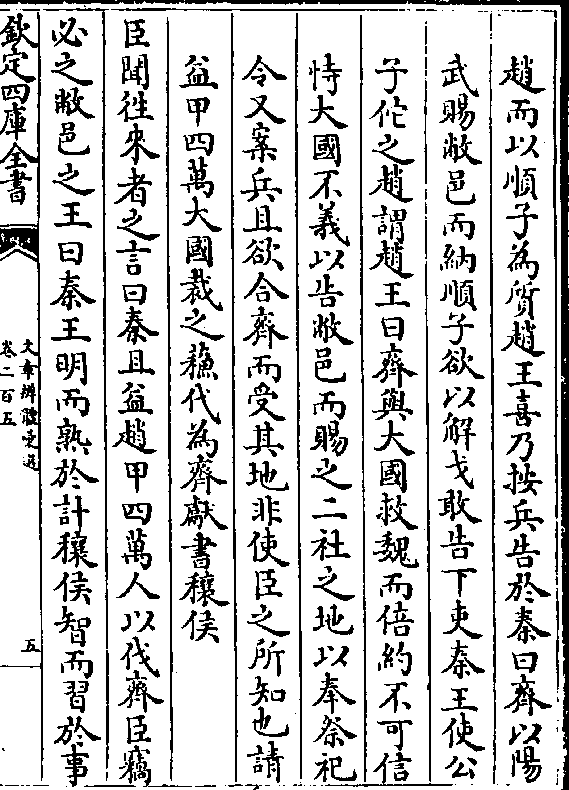 趙而以順子為質趙王喜乃按兵告於秦曰齊以陽
武賜敝邑而納順子欲以解戈敢告下吏秦王使公
子佗之趙謂趙王曰齊與大國救魏而倍約不可信
恃大國不義以告敝邑而賜之二社之地以奉祭祀
令又案兵且欲合齊而受其地非使臣之所知也請
益甲四萬大國裁之蘓代為齊獻書穰侯
臣聞徃來者之言曰秦且益趙甲四萬人以伐齊臣竊
必之敝邑之王曰秦王明而熟於計穰侯智而習於事
欽定四庫全書
文章辨體彚選
卷二百五
五